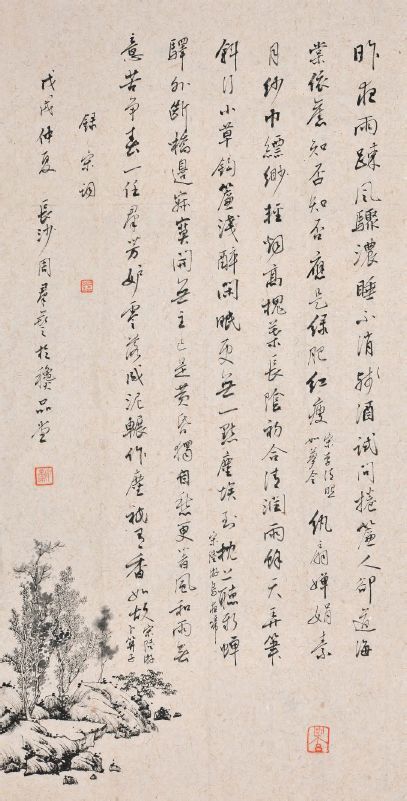 昨夜雨疎風驟濃睡不消殘酒試問捲簾人卻道海
棠依舊知否知否應是綠肥紅瘦
宋李清照
如夢令
紈扇嬋娟素
月紗巾縹緲輕烟高槐葉長陰初合清潤雨餘天弄筆
斜行小草鈎簾淺醉閑眠更無一點塵埃到枕上聽新蟬
宋陸游烏夜啼
驛外斷橋邊寂寞開無主已是黃昏獨自愁更著風和雨無
意苦爭春一任羣芳妒零落成泥輾作塵祇有香如故
宋陸游
卜算子
錄宋詞
戊戌仲夏 長沙周君 於 品堂